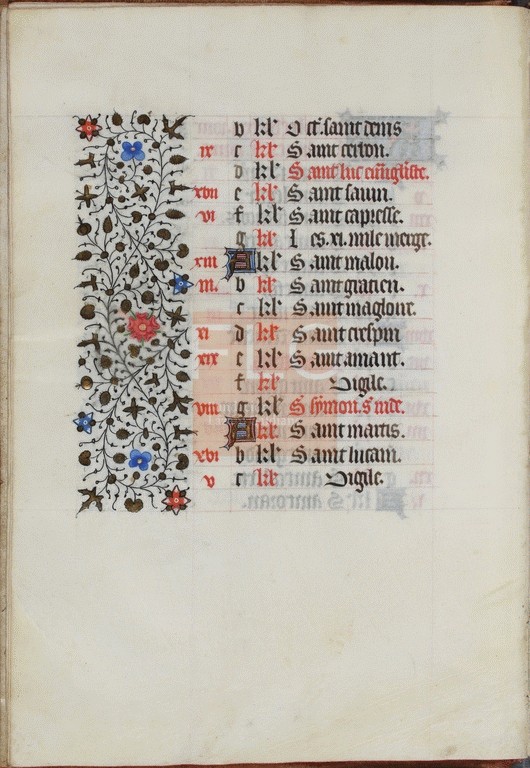 b kl' Oct. saint denis
ix c kl' Saint cerbon.
d kl' Saint luc euvangliste.
xvii e kl' Saint savin.
vi f kl' Saint capresse.
g kl' Les .xi. mile vierge.
xiiii A kl' Saint malou.
iii. b kl' Saint gracien.
c kl' Saint magloire.
xi d kl' Saint crespin
xix e kl' Saint amant.
f kl' Vigile.
viii g kl' S symon. s iude.
A kl' Saint martis.
xvi b kl' Saint lucain.
v c kl' Vigile.